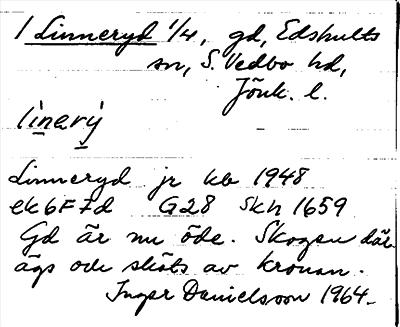 1 Linneryd 1/4, gd, Edshults
sn, S. Vedbo hd,
Jönk. l.
linerý
Linneryd jr kb 1948
ek 6F7d G28 skn 1659
Gd är nu öde. Skogen där
ägs och sköts av kronan.
Inger Danielsson 1964.